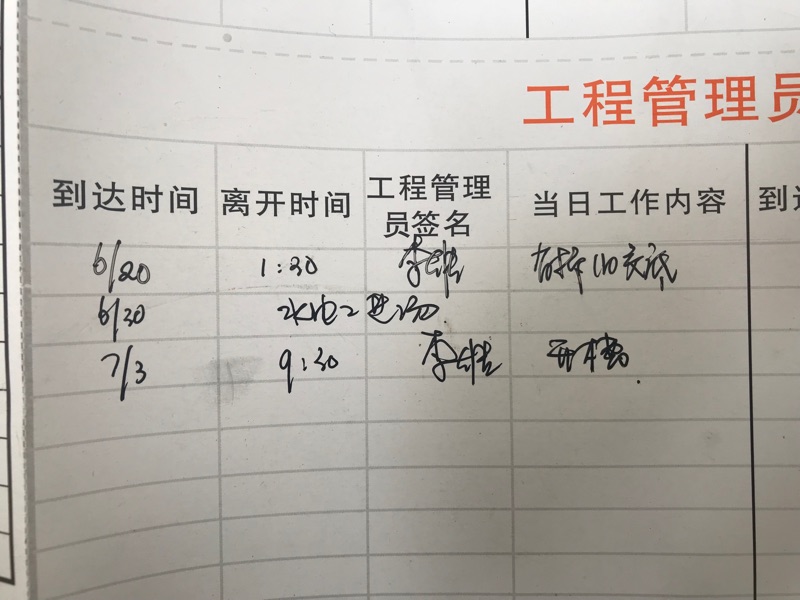 工程管理员
到达时间 离开时间 工程管理员签名 当日工作内容 到达
6/20 1:30 交底
6/30 水电工进场
7/3 9:30 开槽